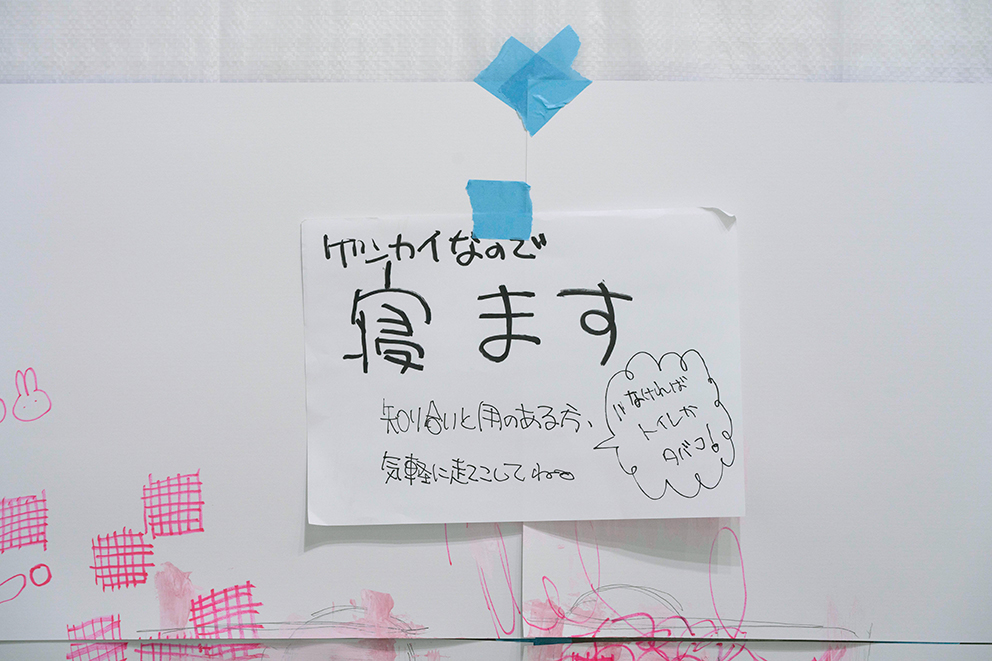 ゲンカイなので
寝ます
知り合いと用のある方、
気軽に起こしてね
いなければ
トイレか
タバコ!